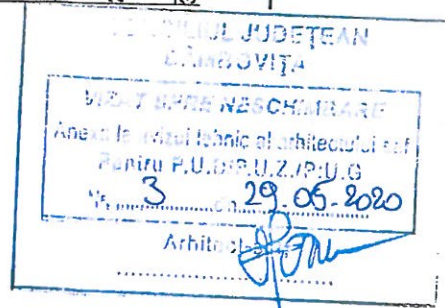 CONSILIUL JUDEȚEAN
DÂMBOVIȚA
VIZAT SPRE NESCHIMBARE
Anexă la avizul tehnic al arhitectului șef
Pentru P.U.D/P.U.Z./P.U.G
Nr. 3 din 29.05.2020
Arhitect